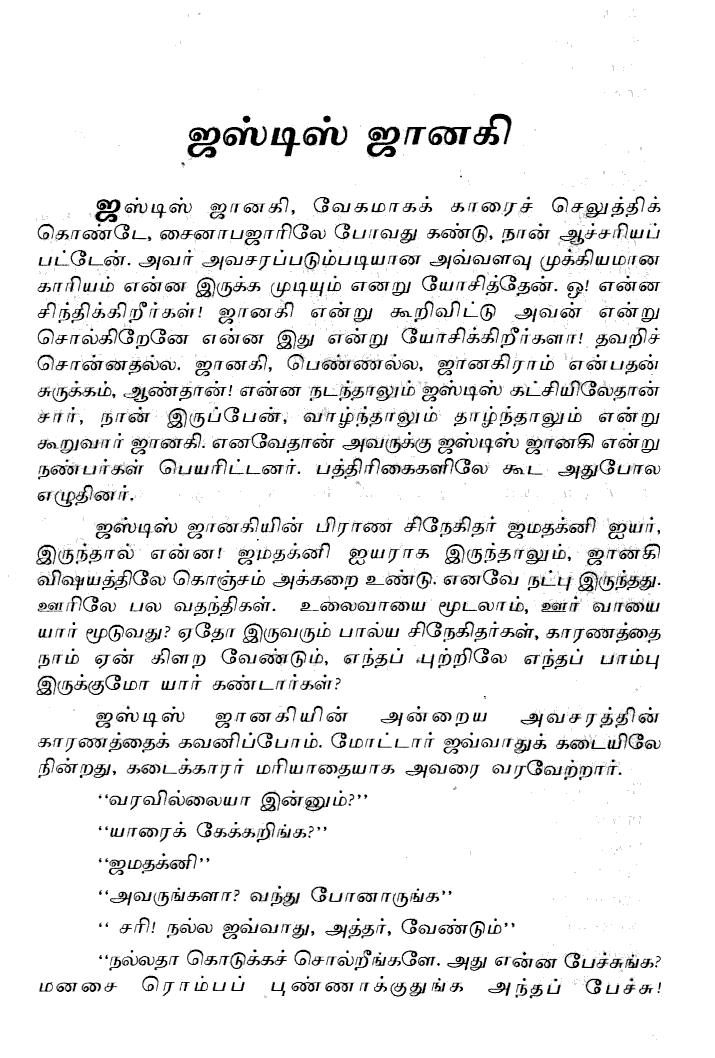 ஜஸ்டிஸ் ஜானகி
ஜஸ்டிஸ் ஜானகி, வேகமாகக் காரைச் செலுத்திக்
கொண்டே, சைனாபஜாரிலே போவது கண்டு, நான் ஆச்சரியப்
பட்டேன். அவர் அவசரப்படும்படியான அவ்வளவு முக்கியமான
காரியம் என்ன இருக்க முடியும் எனறு யோசித்தேன். ஒ! என்ன
சிந்திக்கிறீர்கள்! ஜானகி என்று கூறிவிட்டு அவன் என்று
சொல்கிறேனே என்ன இது என்று யோசிக்கிறீர்களா! தவறிச்
சொன்னதல்ல. ஜானகி, பெண்ணல்ல, ஜானகிராம் என்பதன்
சுருக்கம், ஆண்தான்! என்ன நடந்தாலும் ஜஸ்டிஸ் கட்சியிலேதான்
சார், நான் இருப்பேன், வாழ்ந்தாலும் தாழ்ந்தாலும் என்று
கூறுவார் ஜானகி. எனவேதான் அவருக்கு ஜஸ்டிஸ் ஜானகி என்று
நண்பர்கள் பெயரிட்டனர். பத்திரிகைகளிலே கூட அதுபோல
எழுதினர்.
ஜஸ்டிஸ் ஜானகியின் பிராண சிநேகிதர் ஜமதக்னி ஐயர்,
இருந்தால் என்ன! ஜமதக்னி ஐயராக இருந்தாலும், ஜானகி
விஷயத்திலே கொஞ்சம் அக்கறை உண்டு. எனவே நட்பு இருந்தது.
ஊரிலே பல வதந்திகள். உலைவாயை மூடலாம், ஊர் வாயை
யார் மூடுவது? ஏதோ இருவரும் பால்ய சிநேகிதர்கள், காரணத்தை
நாம் ஏன் கிளற வேண்டும், எந்தப் புற்றிலே எந்தப் பாம்பு
இருக்குமோ யார் கண்டார்கள்?
ஜஸ்டிஸ் ஜானகியின் அன்றைய அவசரத்தின்
காரணத்தைக் கவனிப்போம். மோட்டார் ஜவ்வாதுக் கடையிலே
நின்றது, கடைக்காரர் மரியாதையாக அவரை வரவேற்றார்.
‘‘வரவில்லையா இன்னும்?’’
‘‘யாரைக் கேக்கறிங்க?’’
‘‘ஜமதக்னி’’
‘‘அவருங்களா? வந்து போனாருங்க’’
‘‘ சரி! நல்ல ஜவ்வாது, அத்தர், வேண்டும்’’
‘‘நல்லதா கொடுக்கச் சொல்றீங்களே. அது என்ன பேச்சுங்க?
மனசை ரொம்பப் புண்ணாக்குதுங்க அந்தப் பேச்சு!